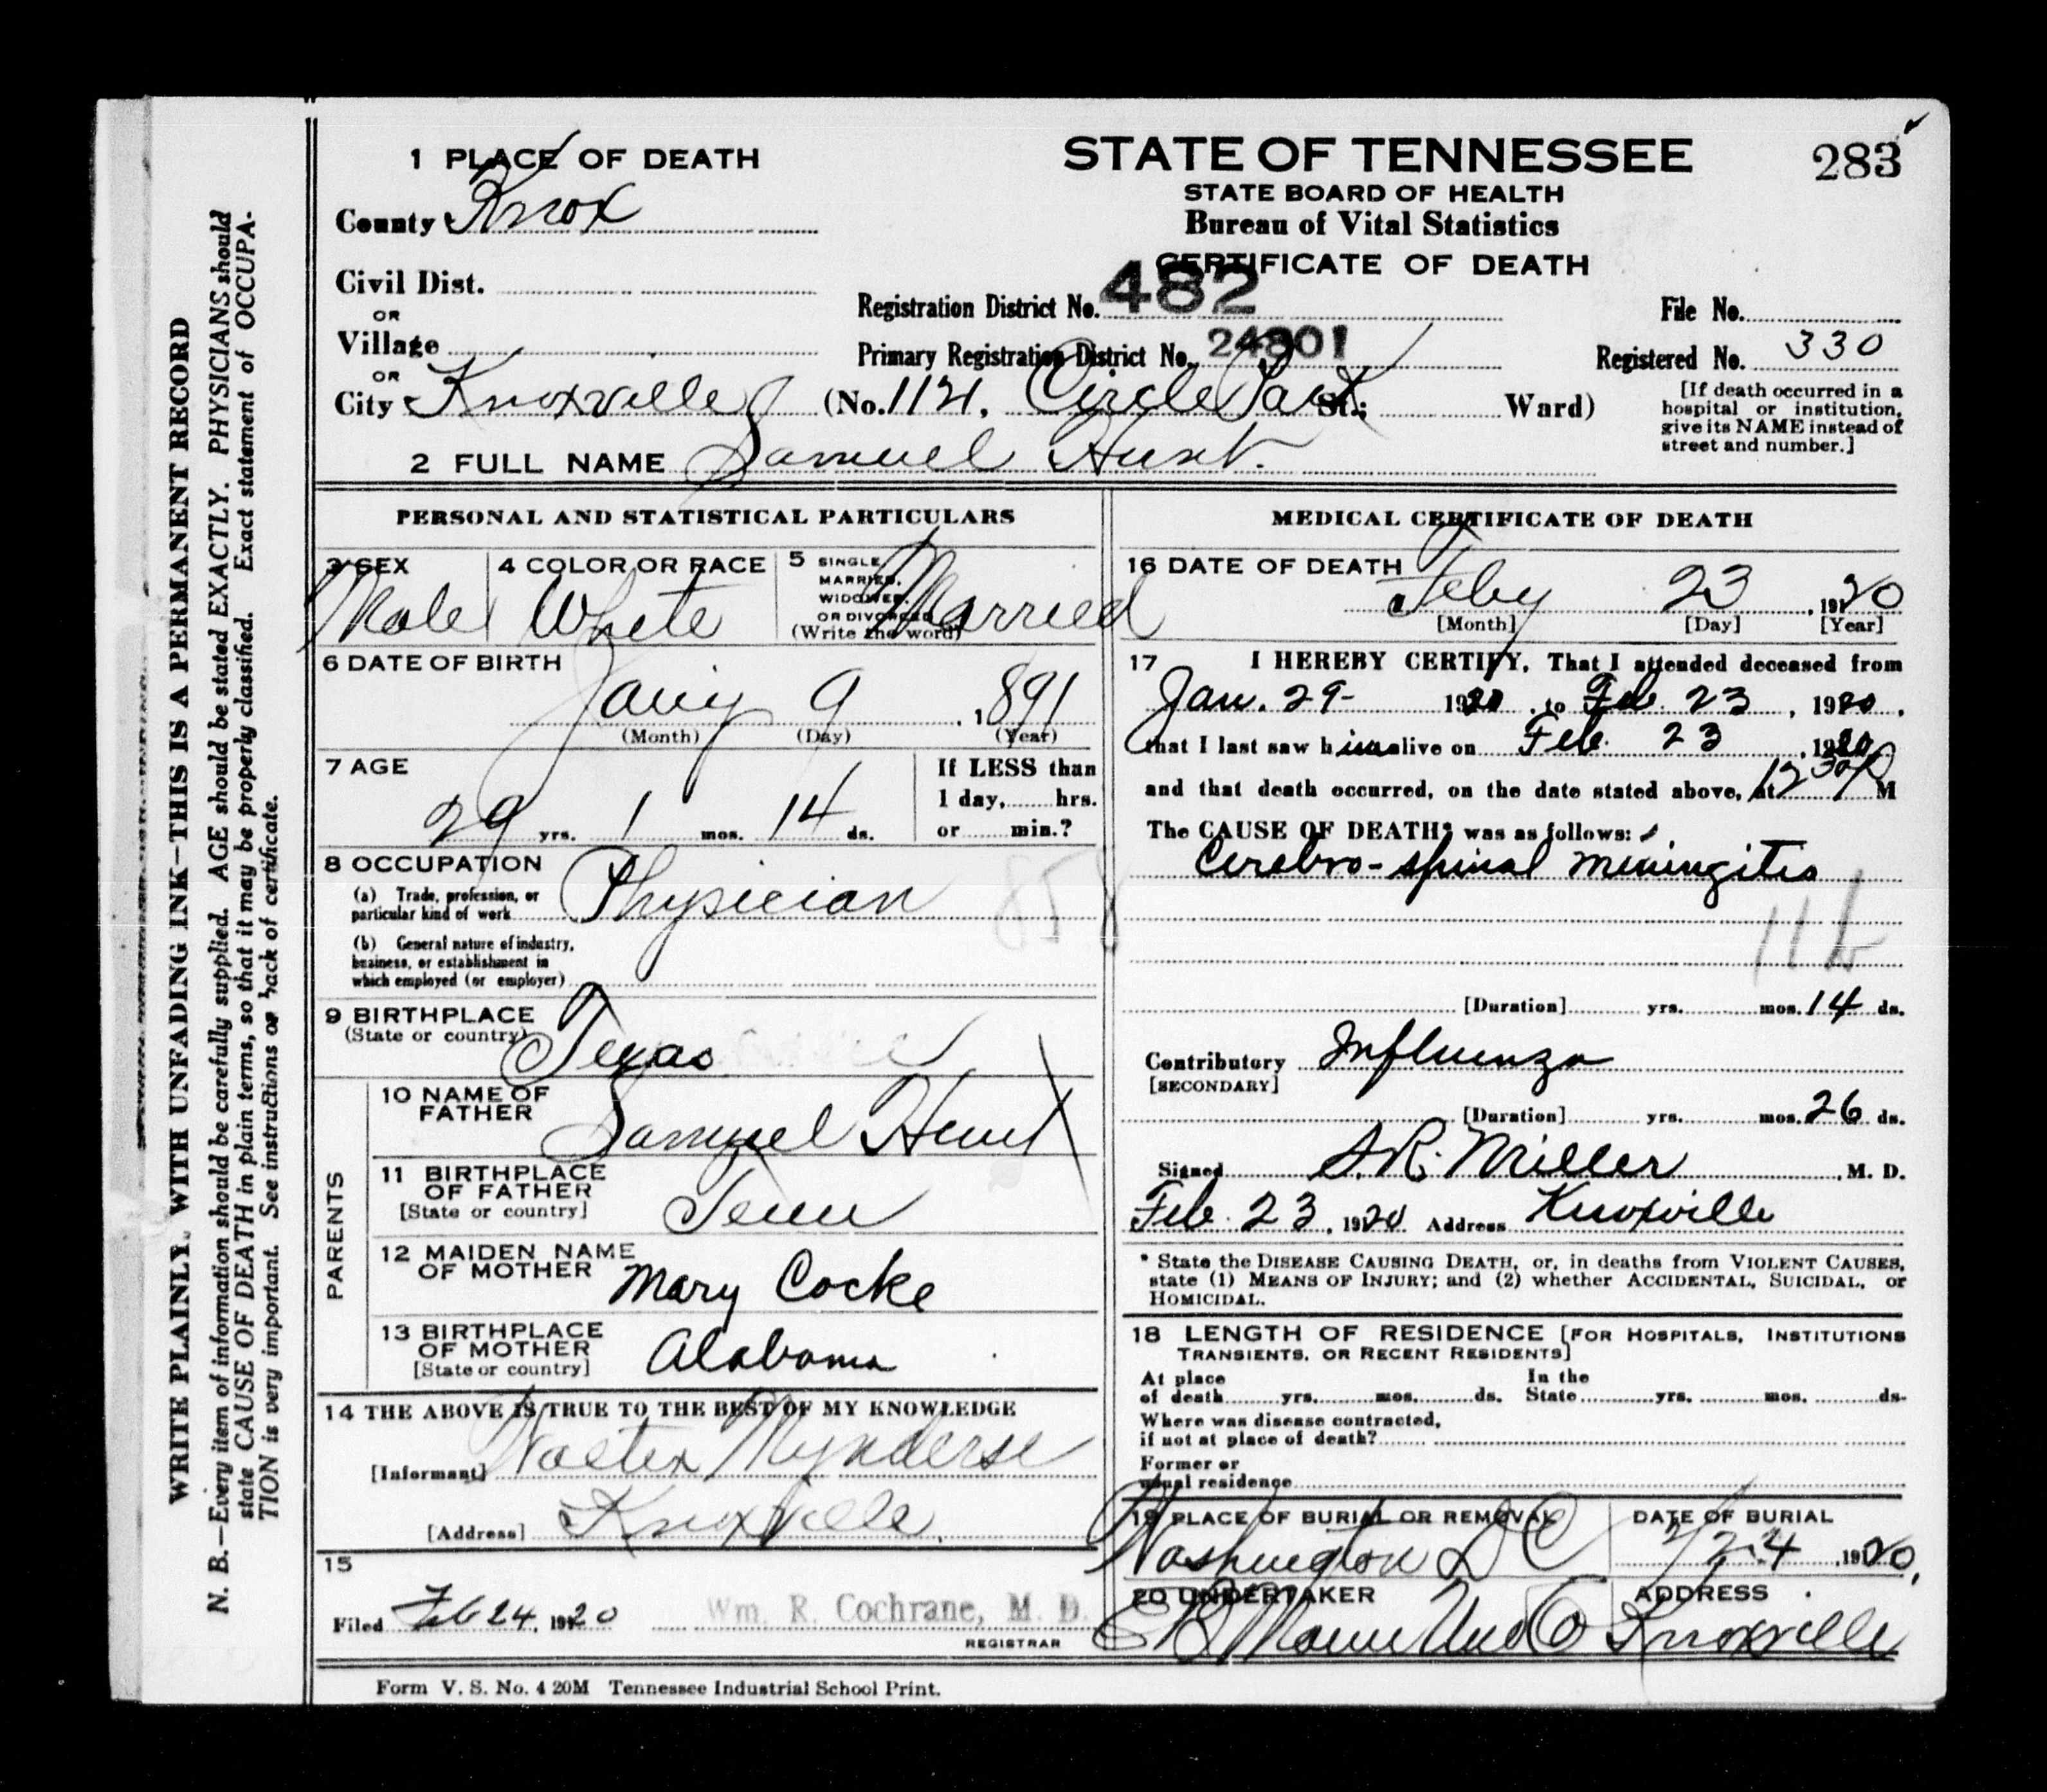 WRITE PLAINLY, WITH UNFADING INK—THIS IS A PERMANENT RECORD
N. B.—Every item of information should be carefully supplied. AGE should be stated EXACTLY. PHYSICIANS should
state CAUSE OF DEATH in plain terms, so that it may be properly classified. Exact statement of OCCUPA-
TION is very important. See instructions on back of certificate.
1 PLACE OF DEATH
County Knox
Civil Dist.
OR
Village
OR
City Knoxville (No. 1121, Circle Park St.; Ward)
STATE OF TENNESSEE
STATE BOARD OF HEALTH
Bureau of Vital Statistics
CERTIFICATE OF DEATH
283
Registration District No. 482
File No.
Primary Registration District No. 24801
Registered No. 330
[If death occurred in a
hospital or institution,
give its NAME instead of
street and number.]
2 FULL NAME Samuel Hunt.
PERSONAL AND STATISTICAL PARTICULARS
3 SEX
Male
4 COLOR OR RACE
White
5 SINGLE,
MARRIED,
WIDOWED,
OR DIVORCED
(Write the word)
Married
6 DATE OF BIRTH
Jany 9, 1891
(Month) (Day) (Year)
7 AGE
29 yrs. 1 mos. 14 ds.
If LESS than
1 day, hrs.
or min.?
8 OCCUPATION
(a) Trade, profession, or
particular kind of work Physician
858
(b) General nature of industry,
business, or establishment in
which employed (or employer)
9 BIRTHPLACE
(State or country) Texas
PARENTS
10 NAME OF
FATHER Samuel Hunt
11 BIRTHPLACE
OF FATHER
[State or country] Tenn
12 MAIDEN NAME
OF MOTHER Mary Cocke
13 BIRTHPLACE
OF MOTHER
[State or country] Alabama
14 THE ABOVE IS TRUE TO THE BEST OF MY KNOWLEDGE
[Informant] Walter Mynderse
[Address] Knoxville,
15
Filed Feb 24, 1920 Wm. R. Cochrane, M. D.
REGISTRAR
MEDICAL CERTIFICATE OF DEATH
16 DATE OF DEATH
Feby 23, 1920
[Month] [Day] [Year]
17 I HEREBY CERTIFY, That I attended deceased from
Jan. 29- 1920, to Feb. 23, 1920,
that I last saw him alive on Feb. 23, 1920
and that death occurred, on the date stated above, at 12 30 P M
The CAUSE OF DEATH* was as follows:
Cerebro-spinal meningitis
[Duration] yrs. mos. 14 ds.
Contributory Influenza
[SECONDARY]
[Duration] yrs. mos. 26 ds.
Signed S.R. Miller, M. D.
Feb. 23, 1920 Address Knoxville
* State the DISEASE CAUSING DEATH, or, in deaths from VIOLENT CAUSES,
state (1) MEANS OF INJURY; and (2) whether ACCIDENTAL, SUICIDAL, or
HOMICIDAL.
18 LENGTH OF RESIDENCE [FOR HOSPITALS, INSTITUTIONS
TRANSIENTS, OR RECENT RESIDENTS]
At place In the
of death yrs. mos. ds. State yrs. mos. ds.
Where was disease contracted,
if not at place of death?
Former or
usual residence
19 PLACE OF BURIAL OR REMOVAL
Washington D C
DATE OF BURIAL
2/24, 1920,
20 UNDERTAKER
E B Mann Und Co
ADDRESS
Knoxville
Form V. S. No. 4 20M Tennessee Industrial School Print.